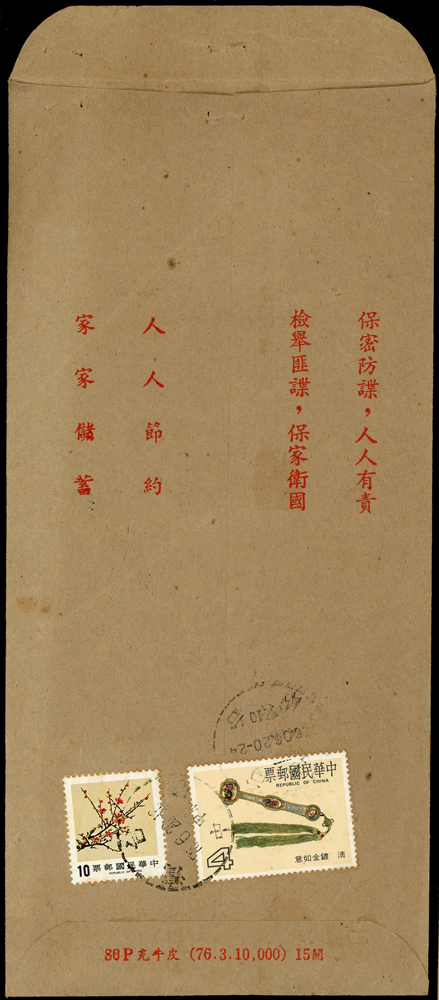 保密防諜，人人有責
檢舉匪諜，保家衛國
人人節約
家家儲蓄
中華民國郵票
REPUBLIC OF CHINA
清 鍍金如意
4
中華民國郵票
REPUBLIC OF CHINA
10
20-24
80P充牛皮 (76.3.10,000) 15開